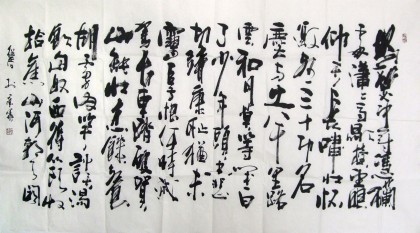 怒髮衝冠憑欄
處瀟瀟雨歇抬望眼
仰天長嘯壯懷
激烈三十功名
塵與土八千里路
雲和月莫等閒白
了少年頭空悲
切靖康恥猶未
雪臣子恨何時滅
駕長車踏破賀
山缺壯志飢餐
胡虜肉笑談渴
飲匈奴血待從頭收
拾舊山河朝天闕